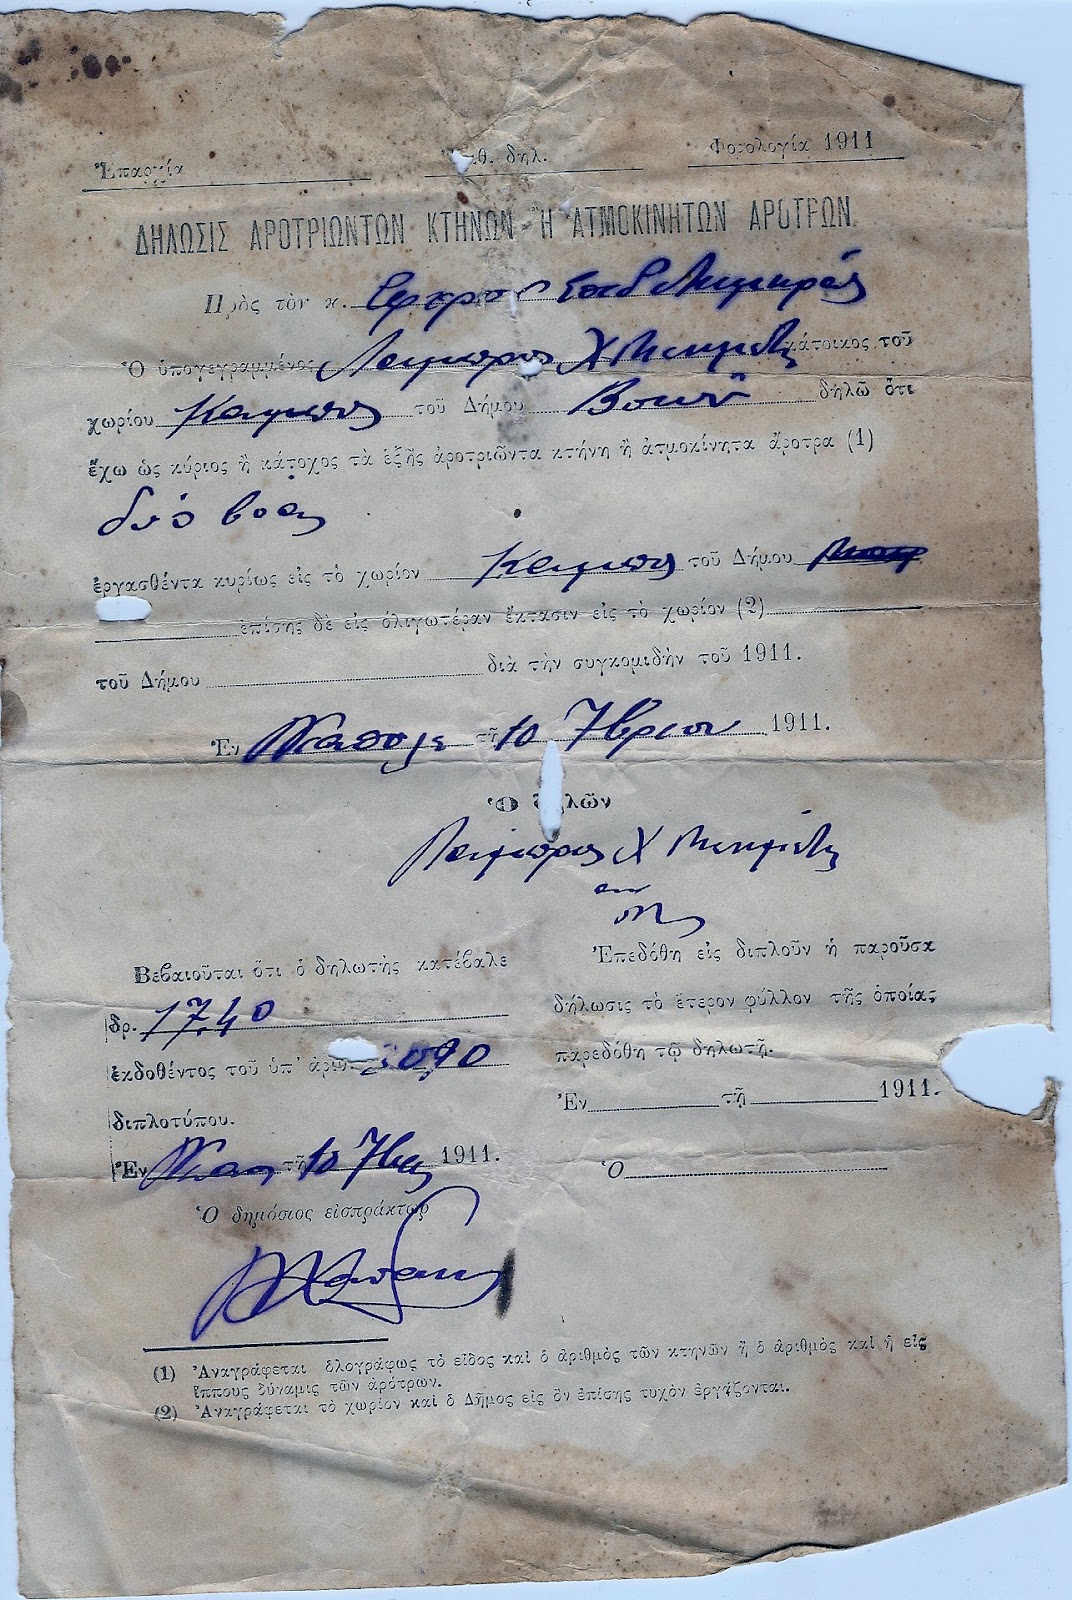 Ἐπαρχία
θ. δηλ.
Φορολογία 1911
ΔΗΛΩΣΙΣ ΑΡΟΤΡΙΩΝΤΩΝ ΚΤΗΝΩΝ Ἢ ἈΤΜΟΚΙΝΗΤΩΝ ΑΡΟΤΡΩΝ
Πρὸς τὸν κ. Ἔφορον
Ὁ ὑπογεγραμμένος Λάμπρος Χ κάτοικος τοῦ
χωρίου Κάμπος τοῦ Δήμου Βοιῶν δηλῶ ὅτι
ἔχω ὡς κύριος ἢ κάτοχος τὰ ἑξῆς ἀροτριῶντα κτήνη ἢ ἀτμοκίνητα ἄροτρα (1)
δύο βόας
ἐργασθέντα κυρίως εἰς τὸ χωρίον Κάμπος τοῦ Δήμου
ἐπίσης δὲ εἰς ὀλιγωτέραν ἔκτασιν εἰς τὸ χωρίον (2)
τοῦ Δήμου διὰ τὴν συγκομιδὴν τοῦ 1911.
Ἐν Νεαπόλει τῇ 10 7βρίου 1911.
Ὁ δηλῶν
Λάμπρος Χ
Βεβαιοῦται ὅτι ὁ δηλωτὴς κατέβαλε
δρ. 17.40
ἐκδοθέντος τοῦ ὑπ' ἀριθ. 090
διπλοτύπου.
Ἐν τῇ 10 7βρ 1911.
Ὁ δημόσιος εἰσπράκτωρ
Ἐπεδόθη εἰς διπλοῦν ἡ παροῦσα
δήλωσις τὸ ἕτερον φύλλον τῆς ὁποίας
παρεδόθη τῷ δηλωτῇ.
Ἐν τῇ 1911.
Ὁ
(1) Ἀναγράφεται ὁλογράφως τὸ εἶδος καὶ ὁ ἀριθμὸς τῶν κτηνῶν ἢ ὁ ἀριθμὸς καὶ ἡ εἰς
ἵππους δύναμις τῶν ἀρότρων.
(2) Ἀναγράφεται τὸ χωρίον καὶ ὁ Δῆμος εἰς ὃν ἐπίσης τυχὸν ἐργάζονται.